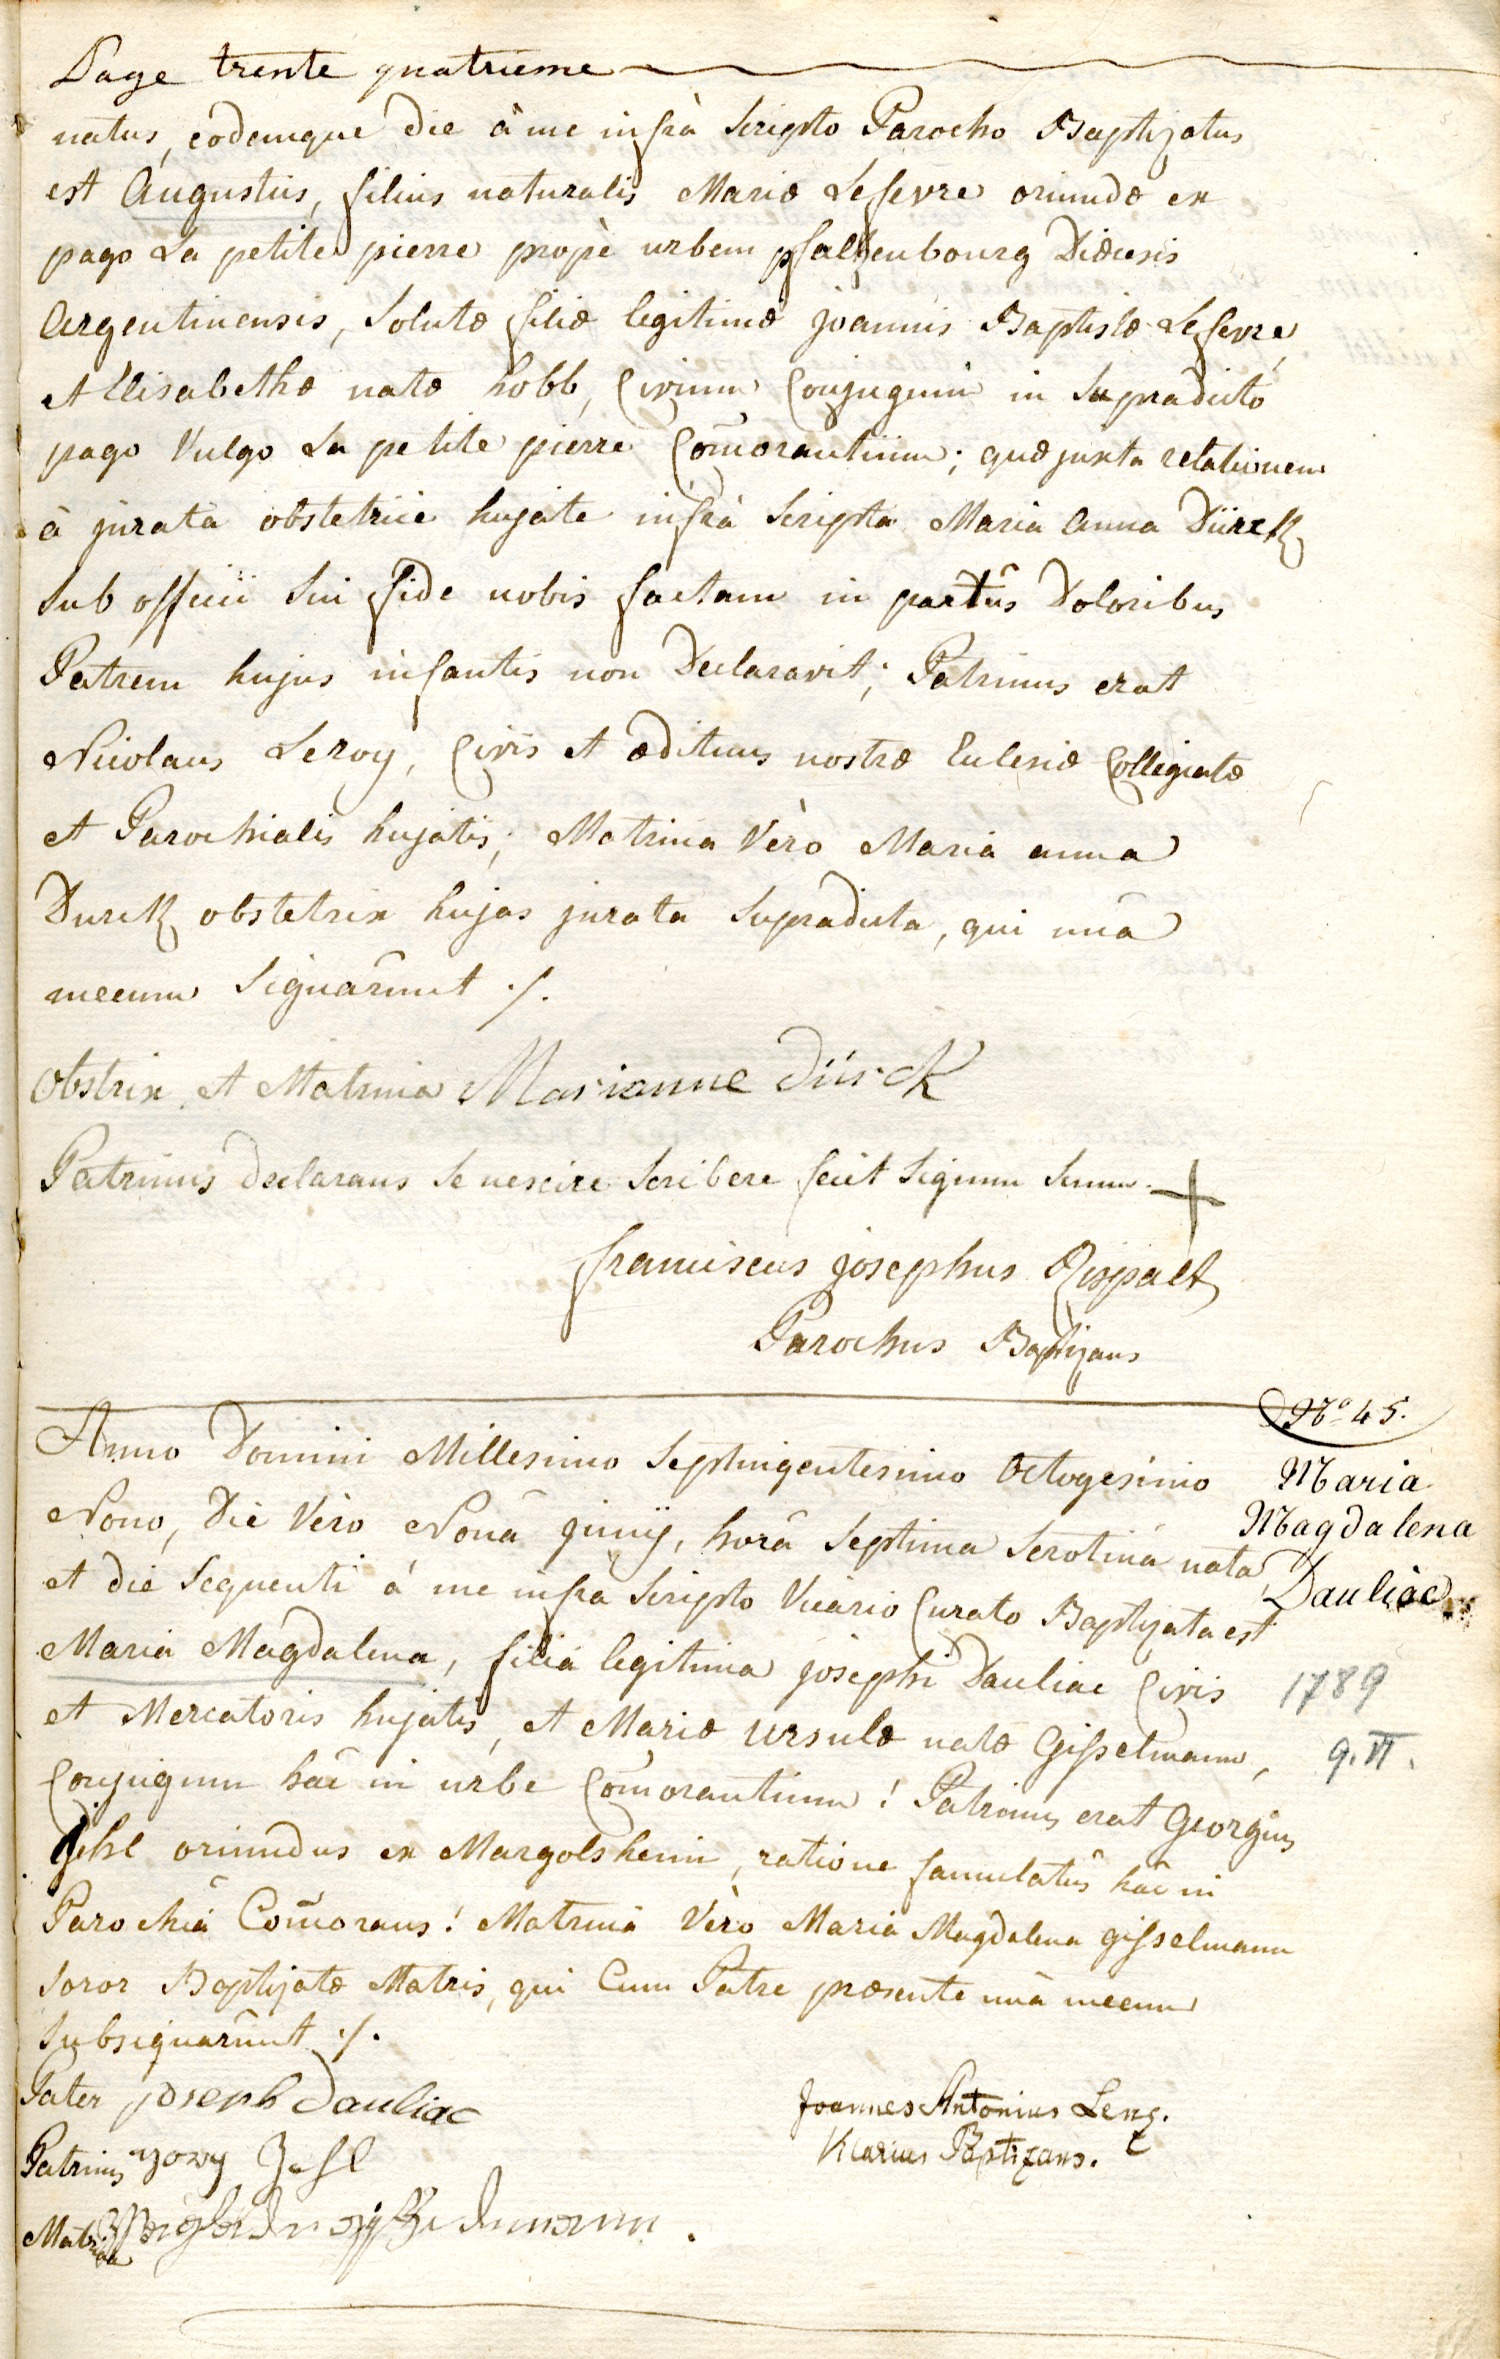 Page trente quatrieme
natus, eodemque die à me infrà Scripto Parocho Baptizatus
est Augustus, filius naturalis Mariæ Lefevre oriundæ ex
pago La petite pierre propè urbem pfaltzenbourg Diœcesis
Argentinensis, Solutæ filiæ legitimæ joannis Baptistæ Lefevre,
et Elisabethæ natæ hobb, Civium Conjugum in Supradicto
pago Vulgo La petite pierre Com̃orantium; quæ juxta relationem
à jurata obstetrice hujate infrà Scripta Maria Anna Dürck
Sub officii Sui fide nobis factam in partûs Doloribus
Patrem hujus infantis non Declaravit; Patrinus erat
Nicolaus Leroy, Civis et ædituus nostræ Eclesiæ Collegiatæ
et Parochialis hujatis; Matrina Vèro Maria anna
Durck obstetrix hujas jurata Supradicta, qui unà
mecum Signarûnt ./.
Obstrix et Matrina Marianne Dürck
Patrinus declarans Se nescire Scribere fecit Signum Suum. +
franciscus josephus Rispalt
Parochus Baptizans
Nº 45.
Anno Domini Millesimo Septingentesimo Octogesimo
Nono, Die Vèro Nonâ Junij, horâ Septima Serotinâ nata,
et die Sequenti à me infra Scripto Vicario Curato Baptizata est
Maria Magdalena, filia legitima josephi Dauliac Civis
et Mercatoris hujatis, et Mariæ Ursulæ natæ Gisselmann,
Conjugum hâc in urbe Com̃orantium! Patrinus erat Georgius
Jehl oriundus ex Margolsheim, ratione famulatûs hâc in
Parochiâ Com̃orans! Matrina Vèro Maria Magdalena gisselmann
Soror Baptizatæ Matris, qui Cum Patre præsente unà mecum
Subsignarûnt ./.
Maria
Magdalena
Dauliac
1789
9. VI.
Pater joseph Dauliac
Patrinus
Matrina
Joannes Antonius Lenz.
Vicarius Baptizans.